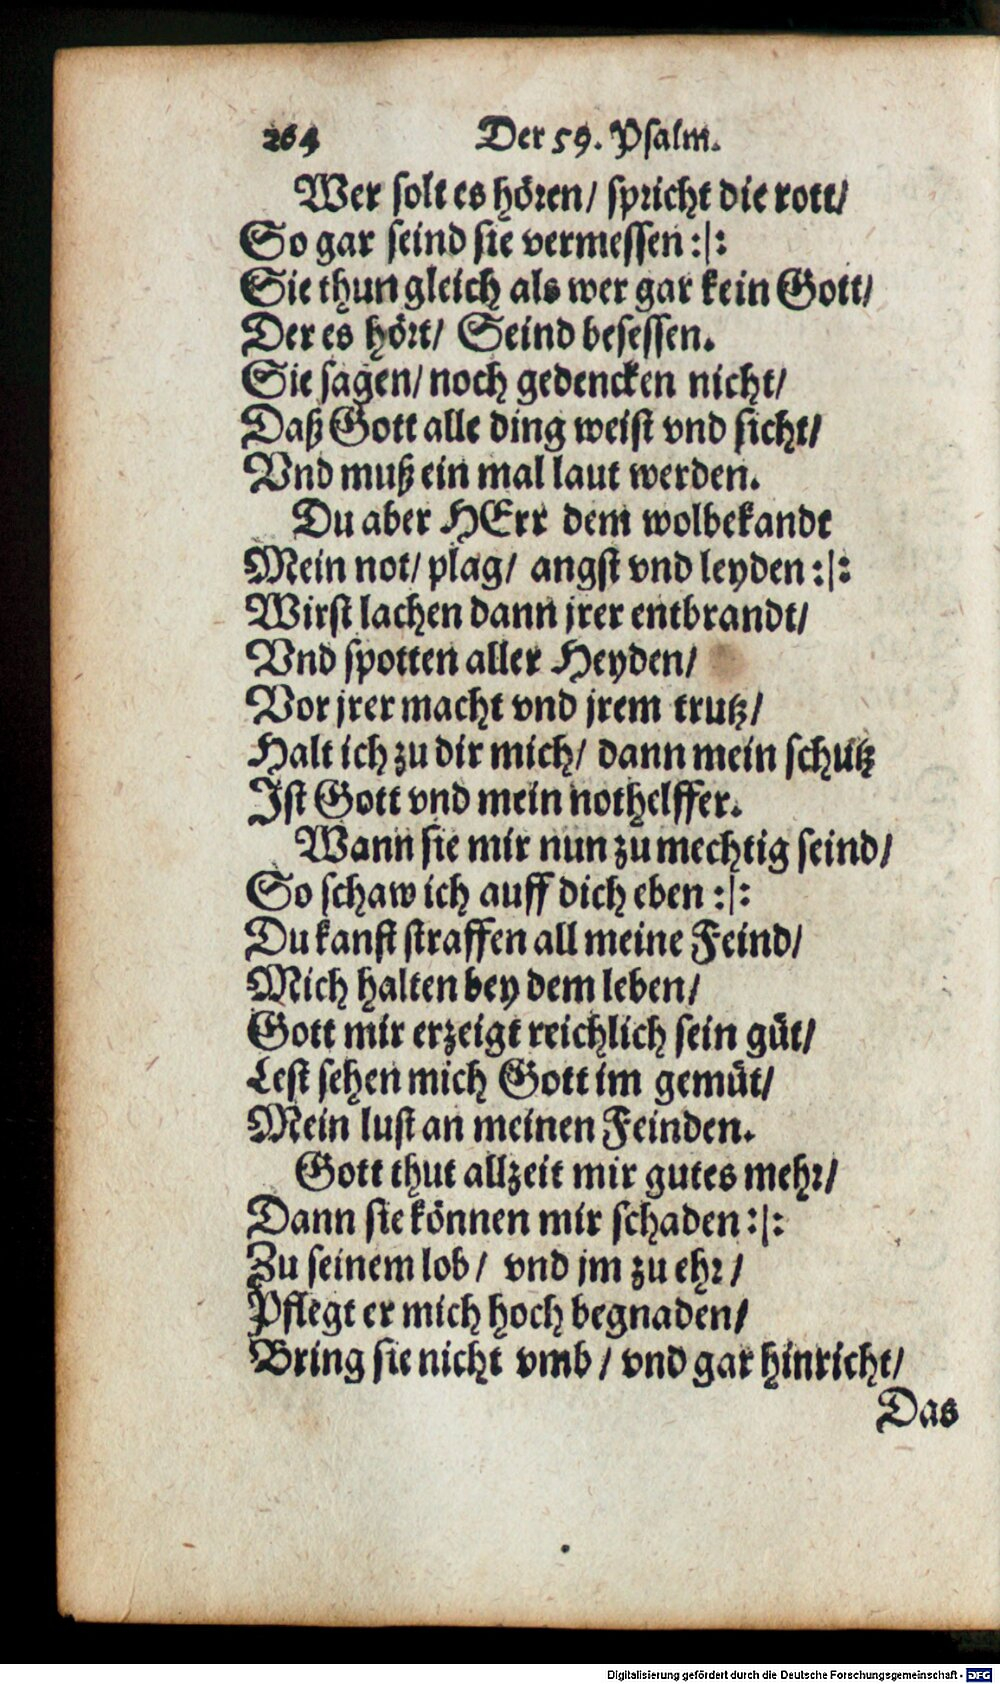 264 Der 59. Psalm.
Wer solt es hören/ spricht die rott/
So gar seind sie vermessen :|:
Sie thun gleich als wer gar kein Gott/
Der es hört/ Seind besessen.
Sie sagen/ noch gedencken nicht/
Daß Gott alle ding weist vnd sicht/
Vnd muß ein mal laut werden.
Du aber HErr dem wolbekandt
Mein not/ plag/ angst vnd leyden :|:
Wirst lachen dann jrer entbrandt/
Vnd spotten aller Heyden/
Vor jrer macht vnd jrem trutz/
Halt ich zu dir mich/ dann mein schutz
Ist Gott vnd mein nothelffer.
Wann sie mir nun zu mechtig seind/
So schaw ich auff dich eben :|:
Du kanst straffen all meine Feind/
Mich halten bey dem leben/
Gott mir erzeigt reichlich sein güt/
Lest sehen mich Gott im gemüt/
Mein lust an meinen Feinden.
Gott thut allzeit mir gutes mehr/
Dann sie können mir schaden :|:
Zu seinem lob/ vnd jm zu ehr/
Pflegt er mich hoch begnaden/
Bring sie nicht vmb/ vnd gar hinricht/
Das
Digitalisierung gefördert durch die Deutsche Forschungsgemeinschaft - DFG